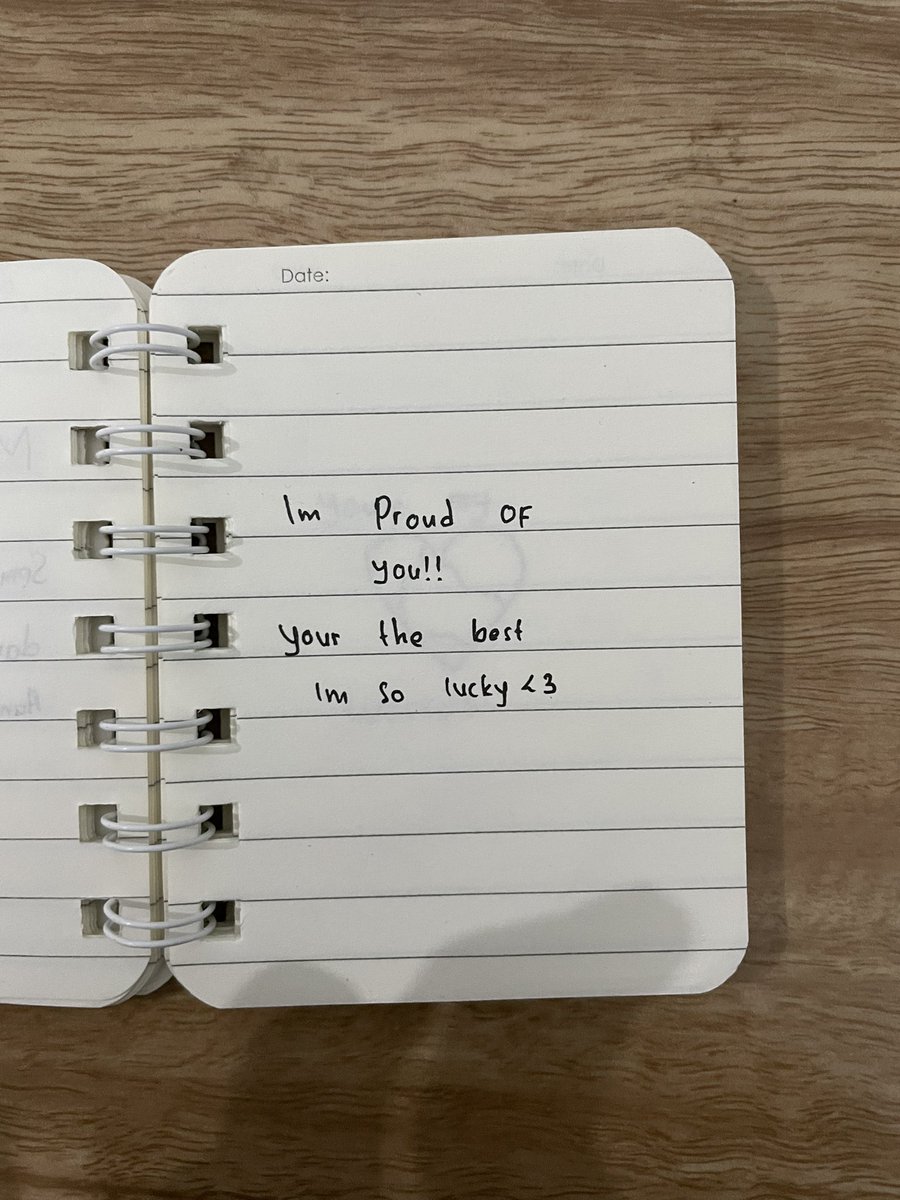 Date:
Im Proud OF
you!!
your the best
Im so lucky <3